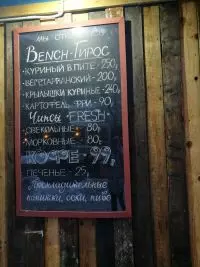 МЫ ОТ
BENCH-ГИРОС
-КУРИНЫЙ В ПИТЕ - 250р
-ВЕГЕТАРИАНСКИЙ - 200р
-КРЫЛЫШКИ КУРИНЫЕ - 240р
-КАРТОФЕЛЬ ФРИ - 90р
ЧИПСЫ "FRESH"
-СВЕКОЛЬНЫЕ - 80р
-МОРКОВНЫЕ - 80р
КОФЕ - 99р
-ПЕЧЕНЬЕ - 25р
Прохладительные
напитки, соки, пиво